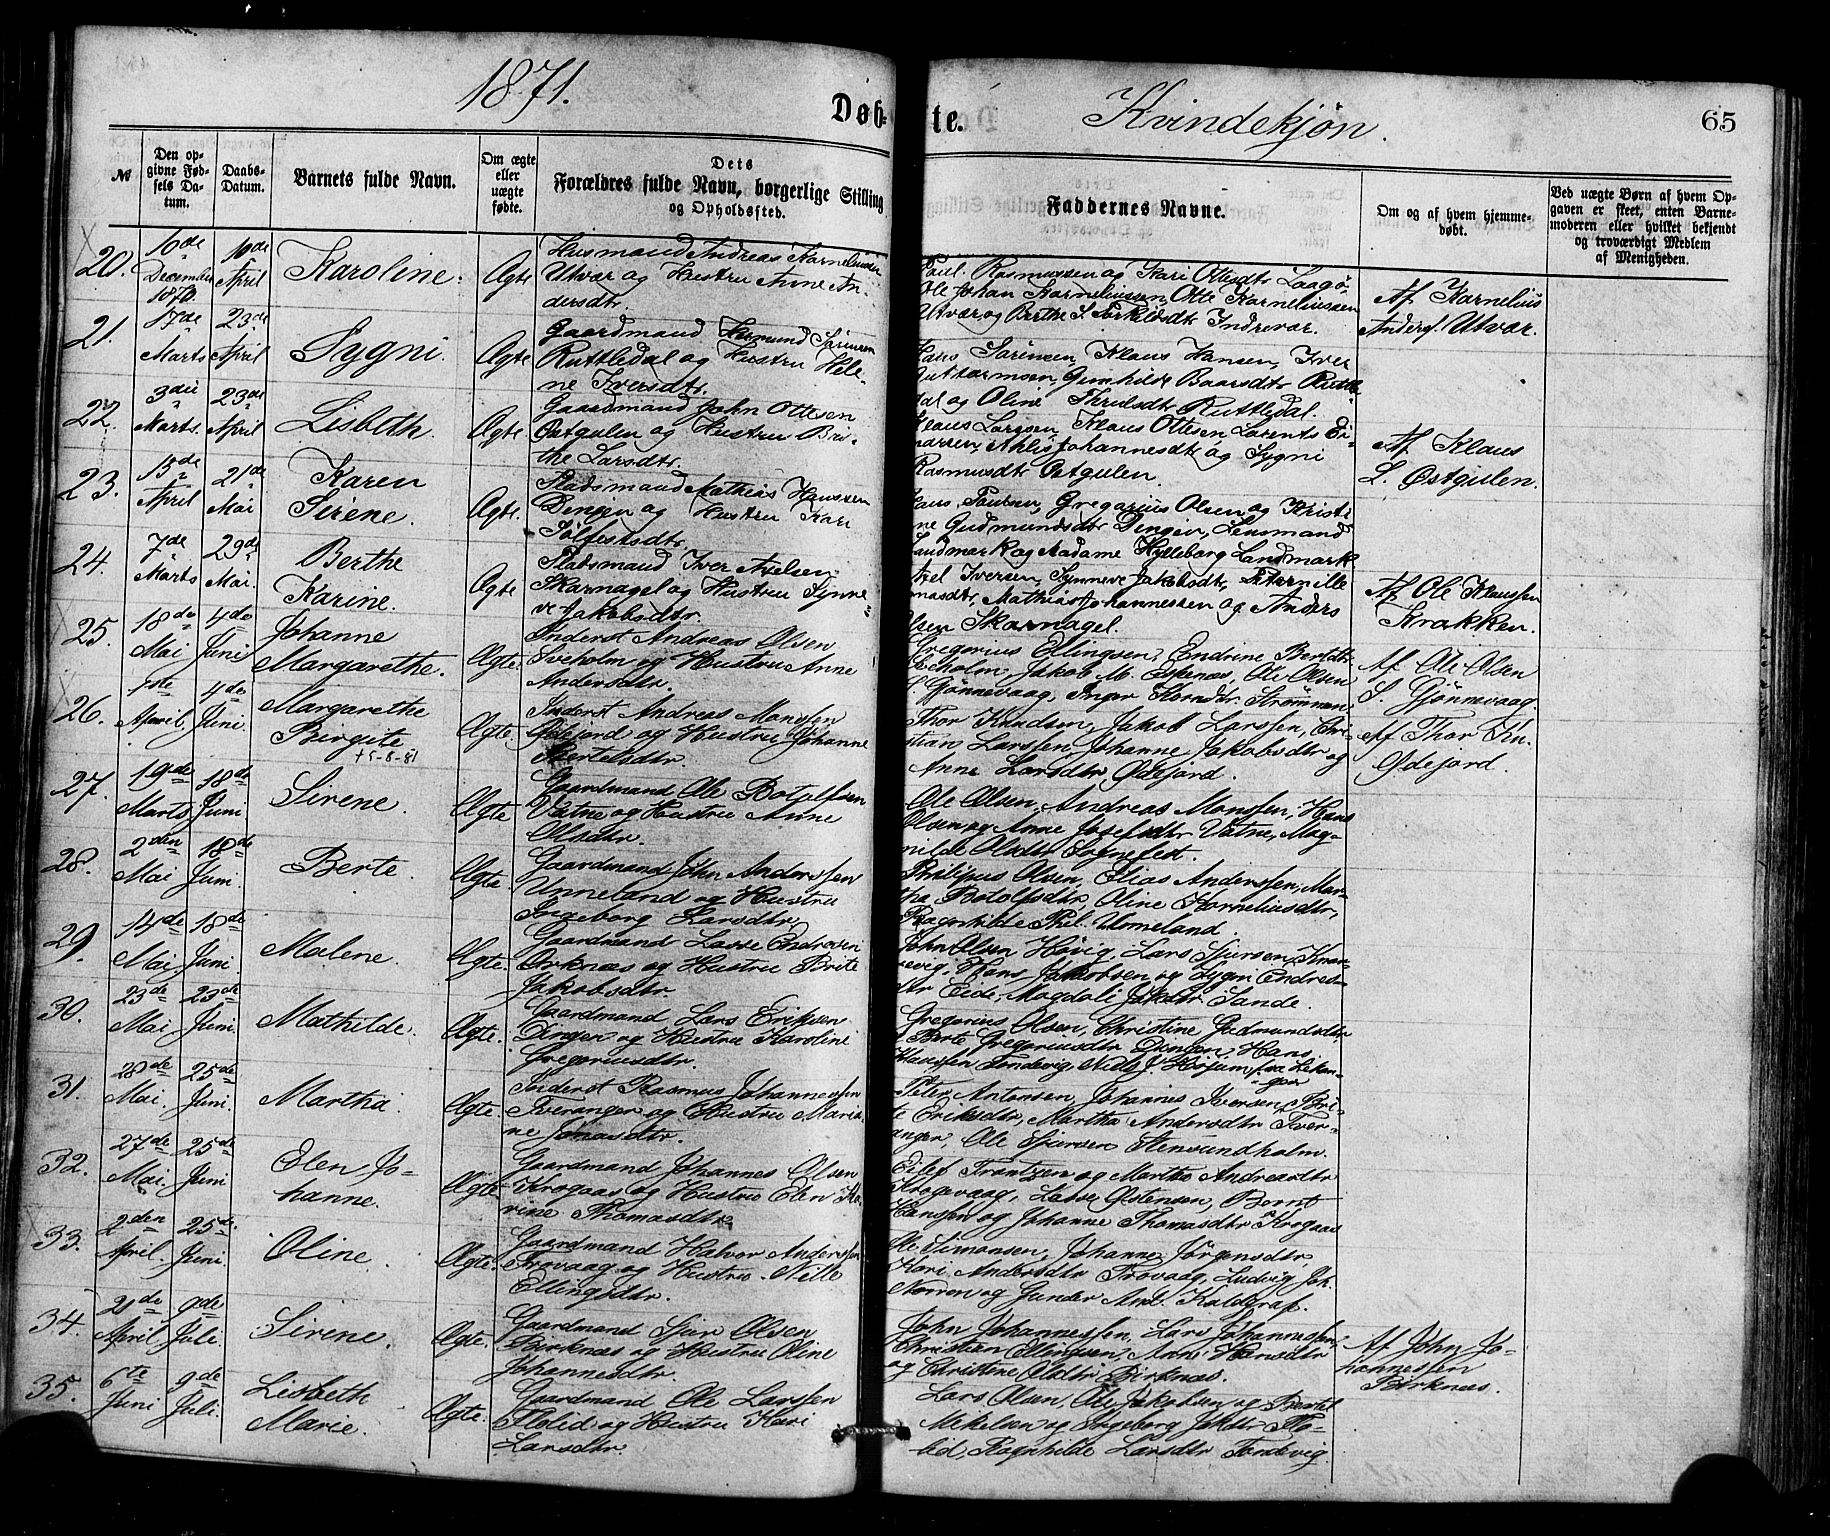 1871.
Døb-
te.
Kvindekjøn.
65
№
Den op-
givne Fød-
sels Da-
tum.
Daabs-
Datum.
Barnets fulde Navn.
Om ægte
eller
uægte
fødte.
Dets
Forældres fulde Navn, borgerlige Stilling
og Opholdssted.
Faddernes Navne.
Om og af hvem hjemme-
døbt.
Ved uægte Børn af hvem Op-
gaven er skeet, enten Barne-
moderen eller hvilket bekjendt
og troværdigt Medlem
af Menigheden.
20.
16de
December
1870.
10de
April
Karoline.
Ægte
Husmand Andreas Korneliussen
Utvær og Hustru Anne An-
dersdtr.
Paul Rasmussen og Kari Ottisdtr Laagø,
Ole Johan Karneliussen, Otte Karneliussen
Utvær og Berthe S. Torkildsdtr Indrevær.
Af Karnelius
Anders. Utvær.
21.
17de
Marts
23de
April
Sygni.
Ægte
Gaardmand Hermund Sørensen
Ruttledal og Hustru Hele-
ne Iversdtr.
Hans Sørensen, Klaus Hansen, Iver
Guttormsen, Gunhilde Baarsdtr Ruttle
dal og Oline Thrulsdtr Ruttledal.
22.
3die
Marts.
23de
April
Lisbeth.
Ægte
Gaardmand John Ottesen
Østgulen og Hustru Bri-
the Larsdtr.
Klaus Larssen, Klaus Ottesen, Larents Ei-
narsen, Ahlis Johannesdtr og Sygni
Rasmusdtr Østgulen.
Af Klaus
L. Østgulen.
23.
15de
April
21de
Mai
Karen
Sirene.
Ægte.
Pladsmand Mathias Hanssen
Dingen og Hustru Kari
Solfestsdtr.
Hans Paulsen, Gregorius Olsen og Kristi
ne Gudmundsdtr Dingen, Lensmand
Landmark og Madame Hylleborg Landmark
24.
7de
Marts
29de
Mai.
Berthe
Karine.
Ægte
Pladsmand Iver Axelsen
Skarnagel og Hustru Synne-
ve Jakobsdtr.
Axel Iversen, Synneve Jakobsdtr, Pternille
masdtr, Mathias Johannessen og Anders
Olsen Skarnagel.
Af Ole Klaussen
Krakken.
25.
18de
Mai
4de
Juni
Johanne
Margarethe.
Ægte.
Inderst Andreas Olsen
Sveholm og Hustru Anne
Andersdtr.
Gregorius Ellingsen, Endrine Berthdtr
Sveholm, Jakob M. Espenæs, Ole Olsen
S. Gjønnevaag, Inger Korndtr Strømmen.
Af Ole Olsen
S. Gjønnevaag.
26.
1ste
April.
4de
Juni.
Margarethe
Birgite
† 5-8-81
Ægte.
Inderst Andreas Monssen
Ødejord og Hustru Johanne
Bertelsdtr.
Thor Knudsen, Jakob Larssen, Chri-
stian Larssen, Johanne Jakobsdtr og
Anne Larsdtr, Ødejord.
Af Thor Kn.
Ødejord.
27.
19de
Marts
18de
Juni
Sirene.
Ægte
Gaardmand Ole Botolfsen
Vatne og Hustru Anne
Olsdtr.
Ole Olsen, Andreas Monssen, Hans
Olsen, og Anne Josefsdtr Vatne, Mag-
nilde Olsdtr Sognefest.
28.
2den
Mai
18de
Juni.
Berte.
Ægte
Gaardmand John Anderssen
Unneland og Hustru
Ingeborg Larsdtr.
Philipus Olsen, Elias Anderssen, Mar-
tha Botolfsdtr, Oline Korneliusdtr,
Ragnhilde Phil. Unneland.
29.
14de
Mai
18de
Juni.
Malene.
Ægte.
Gaardmand Lasse Endresen
Orknæs og Hustru Brite
Jakobsdtr.
John Olsen Høvig, Lars Sjursen Knar-
revig, Hans Jakobsen og Sygni Endres-
dtr Eide, Magdali Jakdtr Sande.
30.
23de
Mai
23de
Juni.
Mathilde.
Ægte.
Gaardmand Lars Eriksen
Dingen og Hustru Karoline
Gregoriusdtr.
Gregorius Olsen, Christine Gudmundsdtr
Berte Gregoriusdtr Dingen, Hans
Klaussen Tondevig, Nils J. Horsum fra Lekan-
ger
31.
28de
Mai.
25de
Juni.
Martha.
Ægte.
Inderst Rasmus Johannessen
Tveranger og Hustru Maria-
ne Jonasdtr.
Peter Antonsen, Johannes Iversen, Bri-
te Eriksdtr, Martha Andersdtr Tver-
anger, Ole Sjursen Stensundholm.
32.
27de
Mai.
25de
Juni
Elen Jo-
hanne.
Ægte
Gaardmand Johannes Olsen
Krogaas og Hustru Elen Ka-
rine Thomasdtr.
Eilef Trontsen og Martha Andreasdtr
Krogevaag, Lasse Østensen, Bernt
Hanssen og Johanne Thomasdtr Krogaas
33.
2den
April.
25de
Juni.
Oline.
Ægte.
Gaardmand Halvor Anderssen
Trovaag og Hustru Nille
Ellingsdtr.
Ole Simonsen, Johanne Jørgensdtr,
Kari Andersdtr Trovaag, Ludvig Joh.
Norron og Gunder And. Kalderaf.
34.
21de
April
9de
Juli.
Sirene.
Ægte.
Gaardmand Sjur Olsen
Birknæs og Hustru Oline
Johannesdtr.
John Johannessen, Lars Johannessen,
Christian Ellingsen, Anne Hansdtr
og Christine Olsdtr Birknæs.
Af John Jo-
hannessen
Birknæs.
35.
6te
Juni
9de
Juli.
Lisbeth
Marie.
Ægte.
Gaardmand Ole Larssen
Flolid og Hustru Kari
Larsdtr.
Lars Olsen, Ole Jakobsen og Bertel
Mikelsen og Ingeborg Jakdtr Flo-
lid, Ragnhilde Larsdtr Tondevig.